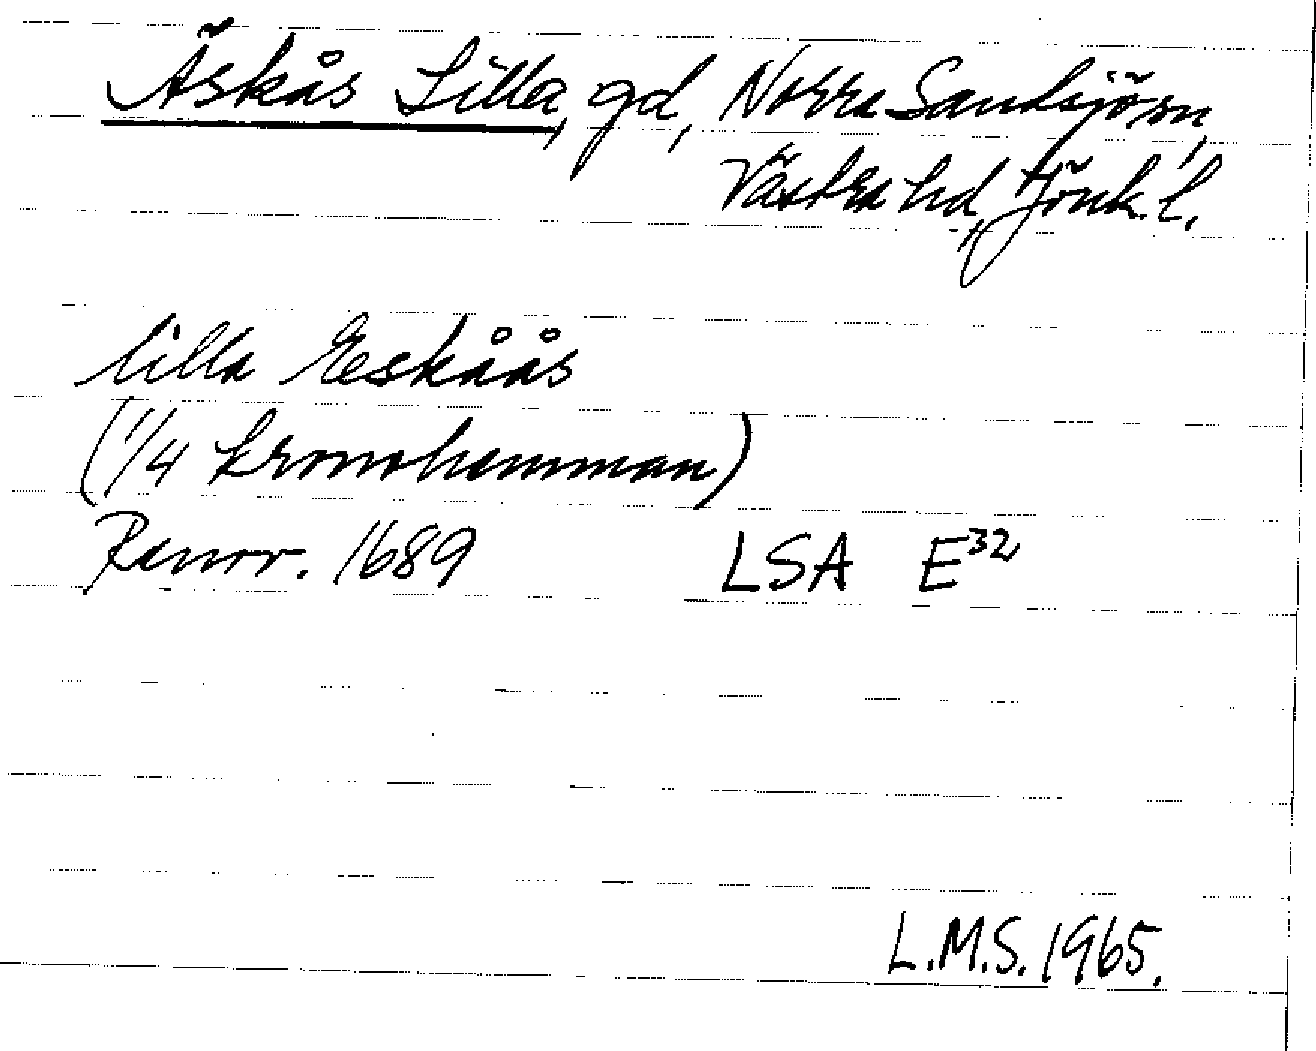 Äskås Lilla, gd, Norra Sandsjö sn,
Västra hd, Jönk. l.
lilla Eeskåås
(1/4 kronohemman)
Renov. 1689 LSA E32
L.M.S. 1965.